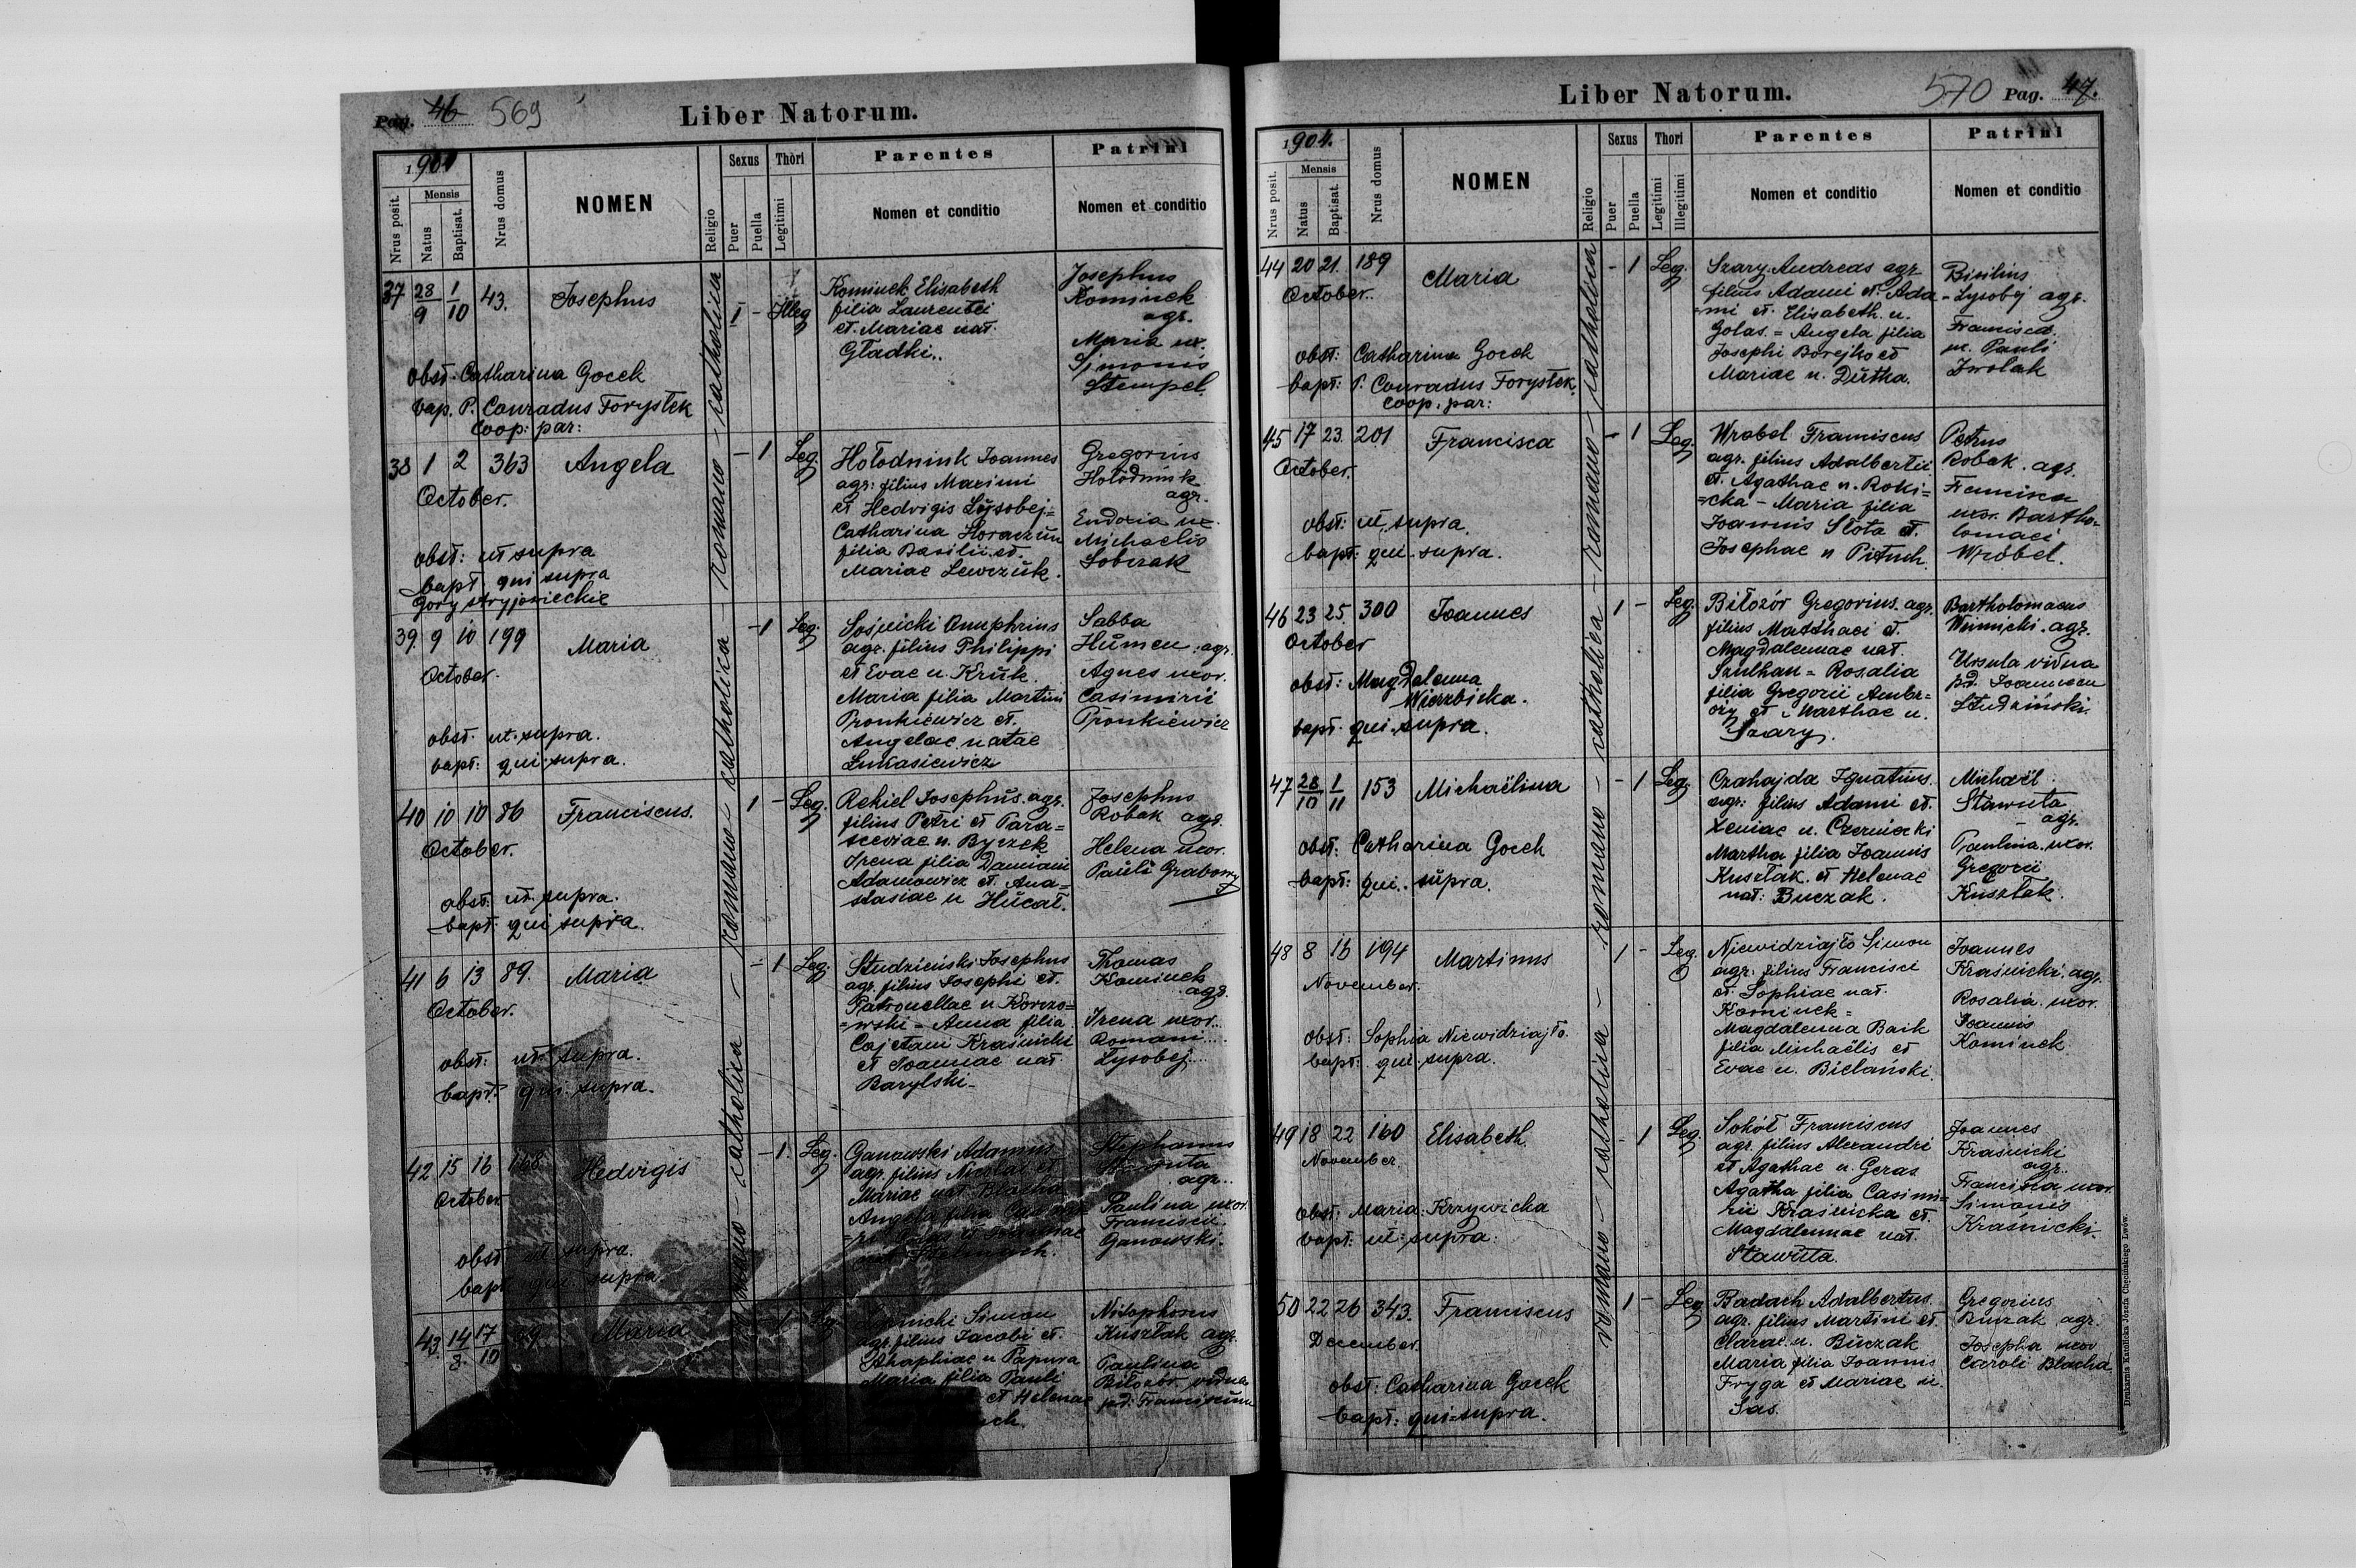 Pag. 46 569
Liber Natorum.
1904
Nrus posit.
Mensis
Natus
Baptisat.
Nrus domus
NOMEN
Religio
Sexus
Puer
Puella
Thori
Legitimi
Parentes
Nomen et conditio
Patrini
Nomen et conditio
romano - catholica - romano - catholica - romano - catholica - romano - catholica
37 28/9 1/10 43. Josephus 1 - Illeg
Kominek Elisabeth
filia Laurentii
et Mariae nat.
Gładki..
Josephus
Kominek
agr.
Maria ux.
Simonis
Stempel
obst: Catharina Gocek
bap. P. Conradus Forystek
Coop: par:
38 1 2 363 Angela - 1 Leg
October.
Hołodniuk Joannes
agr: filius Maximi
et Hedvigis Łysobej =
Catharina Horaczun
filia Basilii et.
Mariae Lewczuk.
Gregorius
Hołodniuk
agr.
Eudoxia ux.
Michaelis
Sobczak
obst: ut supra
bapt: qui supra
Gory stryjowieckie
39. 9 10 199 Maria - 1 Leg.
October.
Sośnicki Onuphrius
agr. filius Philippi
et Evae n. Kruk.
Maria filia Martini
Pronkiewicz et.
Angelae natae
Łukasiewicz
Sabba
Humen. agr.
Agnes uxor.
Casimirii
Pronkiewicz
obst. ut. supra.
bapt: qui supra.
40 10 10 86 Franciscus. 1 - Leg.
October.
Rekiel Josephus. agr.
filius Petri et Para=
sceviae n. Byczek
Irena filia Damiani
Adamowicz et. Ana=
stasiae n Hucał.
Josephus
Robak agr.
Helena uxor.
Pauli Grabowy
obst. ut supra.
bapt: qui supra.
41 6 13 89. Maria - 1 Leg.
October.
Studzieński Josephus
agr. filius Josephi et.
Patronellae n Korczo=
=wski = Anna filia
Cajetani Kraśnicki
et Joannae nat
Barylski-
Thomas
Kominek
agr.
Irena uxor..
Romani...
Łysobej...
obst: ut supra.
bapt: qui. supra.
42 15 16 168 Hedvigis - 1. Leg.
October
Ganowski Adamus
agr. filius Nicolai et
Mariae nat. Blacha
Angela filia
Stephanus
Stawuta
agr..
Paulina uxor.
Francisci
Ganowski.
obst ut supra.
bapt qui supra
43 14/8 17/10 Maria - 1
Simon
agr. filius Jacobi et.
n Papura
Maria filia Pauli
et Helenae
Nicephorus
Kusztak agr.
Paulina
Biłozór vidua
pd: Franciscum
Liber Natorum.
570 Pag. 47.
1904.
Nrus posit.
Mensis
Natus
Baptisat.
Nrus domus
NOMEN
Religio
Sexus
Puer
Puella
Thori
Legitimi
Illegitimi
Parentes
Nomen et conditio
Patrini
Nomen et conditio
romano - catholica - romano - catholica - romano - catholica - romano - catholica
44 20 21. 189 Maria - 1 Leg.
October.
Szary Andreas agr
filius Adami et. Ada
=mi et. Elisabeth. n.
Golas. = Angela filia
Josephi Borejko et
Mariae n. Dutka.
Basilius
- Łysobej agr.
Francisca
ux. Pauli
Iwolak
obst: Catharina Gocek
bapt: P. Conradus Forystek.
Coop. par:
45 17 23. 201 Francisca - 1 Leg.
October.
Wrobel Franciscus
agr. filius Adalbertii
et. Agathae n. Roki=
=cka - Maria filia
Joannis Słota et.
Josephae n Pituch.
Petrus
Robak. agr.
Francisca
uxor. Bartho=
lomaei
Wróbel.
obst: ut supra.
bapt: qui supra.
46 23 25. 300 Joannes 1 - Leg.
October
Biłozór Gregorius. agr.
filius Matthaei et.
Magdalennae nat.
Szulhan = Rosalia
filia Gregorii Ambr=
oży et Marthae n.
Szary.
Bartholomaeus
Winnicki. agr.
Ursula vidua
pd. Joannem
Studziński.
obst: Magdalenna
Wierzbicka.
bapt. qui. supra.
47 28/10 1/11 153 Michaëlina - 1 Leg.
Czahajda Ignatius.
agr: filius Adami et.
Xeniae n. Czerniecki
Martha filia Joannis
Kusztak. et Helenae
nat: Buczak.
Michaël
Stawuta
agr.
Paulina. uxor.
Gregorii
Kusztak.
obst: Catharina Gocek
bapt: qui. supra.
48 8 15 194 Martinus 1 - Leg.
November.
Niewidziajło Simon
agr: filius Francisci
et. Sophiae nat.
Kominek =
Magdalenna Baik
filia Michaëlis et
Evae n. Bielański.
Joannes
Kraśnicki. agr.
Rosalia. uxor.
Joannis
Kominek
obst: Sophia Niewidziajło.
bapt: qui supra.
49 18 22 160 Elisabeth - 1 Leg.
November.
Sokół Franciscus
agr. filius Alexandri
et Agathae n. Geras
Agatha filia Casimi=
rii Kraśnicka et.
Magdalennae nat.
Stawuta.
Joannes
Kraśnicki
agr..
Francisca uxor.
Simonis
Kraśnicki.
obst: Maria: Krzywicka
bapt: ut supra:
50 22 26 343. Franciscus 1 - Leg.
December.
Badach Adalbertus.
agr. filius Martini et.
Clarae n. Buczak
Maria filia Joannis
Fryga et Mariae n.
Sas.
Gregorius
Buczak agr.
Josepha uxor
Caroli Blacha
obst: Catharina Gocek
bapt: qui supra.
Drukarnia Katolicka Józefa Chęcińskiego Lwów.